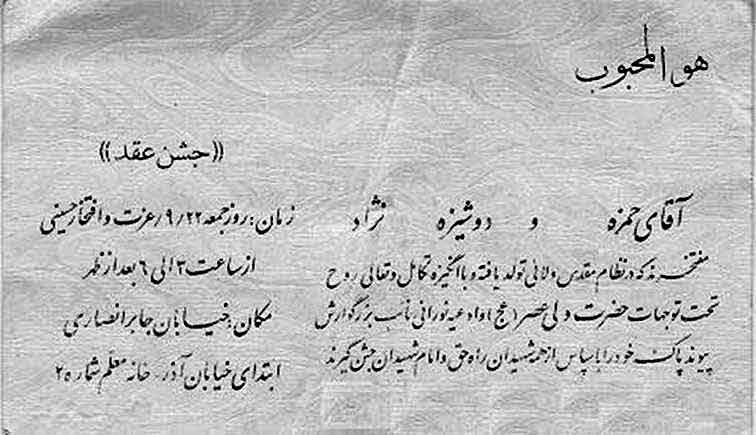 هو المحبوب
((جشن عقد))
آقای حمزه و دوشیزه نژاد
مفتخرند که در نظام مقدس ولائی تولد یافته و با انگیزه تکامل و تعالی روح
تحت توجهات حضرت ولی عصر (عج) و ادعیه نورانی نائب بزرگوارش
پیوند پاک خود را با سپاس از همه شهیدان راه حق و امام شهیدان جشن گیرند
زمان: روز جمعه ۹/۲۲/ عزت و افتخار حسینی
از ساعت ۳ الی ۶ بعد از ظهر
مکان: خیابان جابر انصاری
ابتدای خیابان آذر - خانه معلم شماره ۲